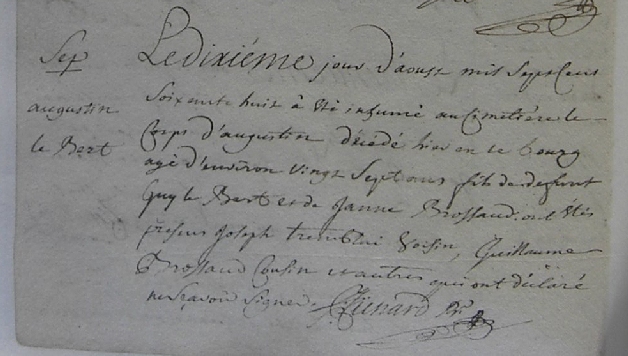 Sep
augustin
le Bert
Le dixiéme jour d'aoust mil sept cens
soixante huit à été inhumé au Cimetiére le
Corps d'augustin décédé hier en ce bourg
agé d'environ vingt sept ans fils de defunt
Guy le Bert et de Janne Brossaud. ont étés
presens Joseph tremblai Voisin, Guillaume
Brossaud Cousin et autres qui ont déclaré
ne sçavoir signer.